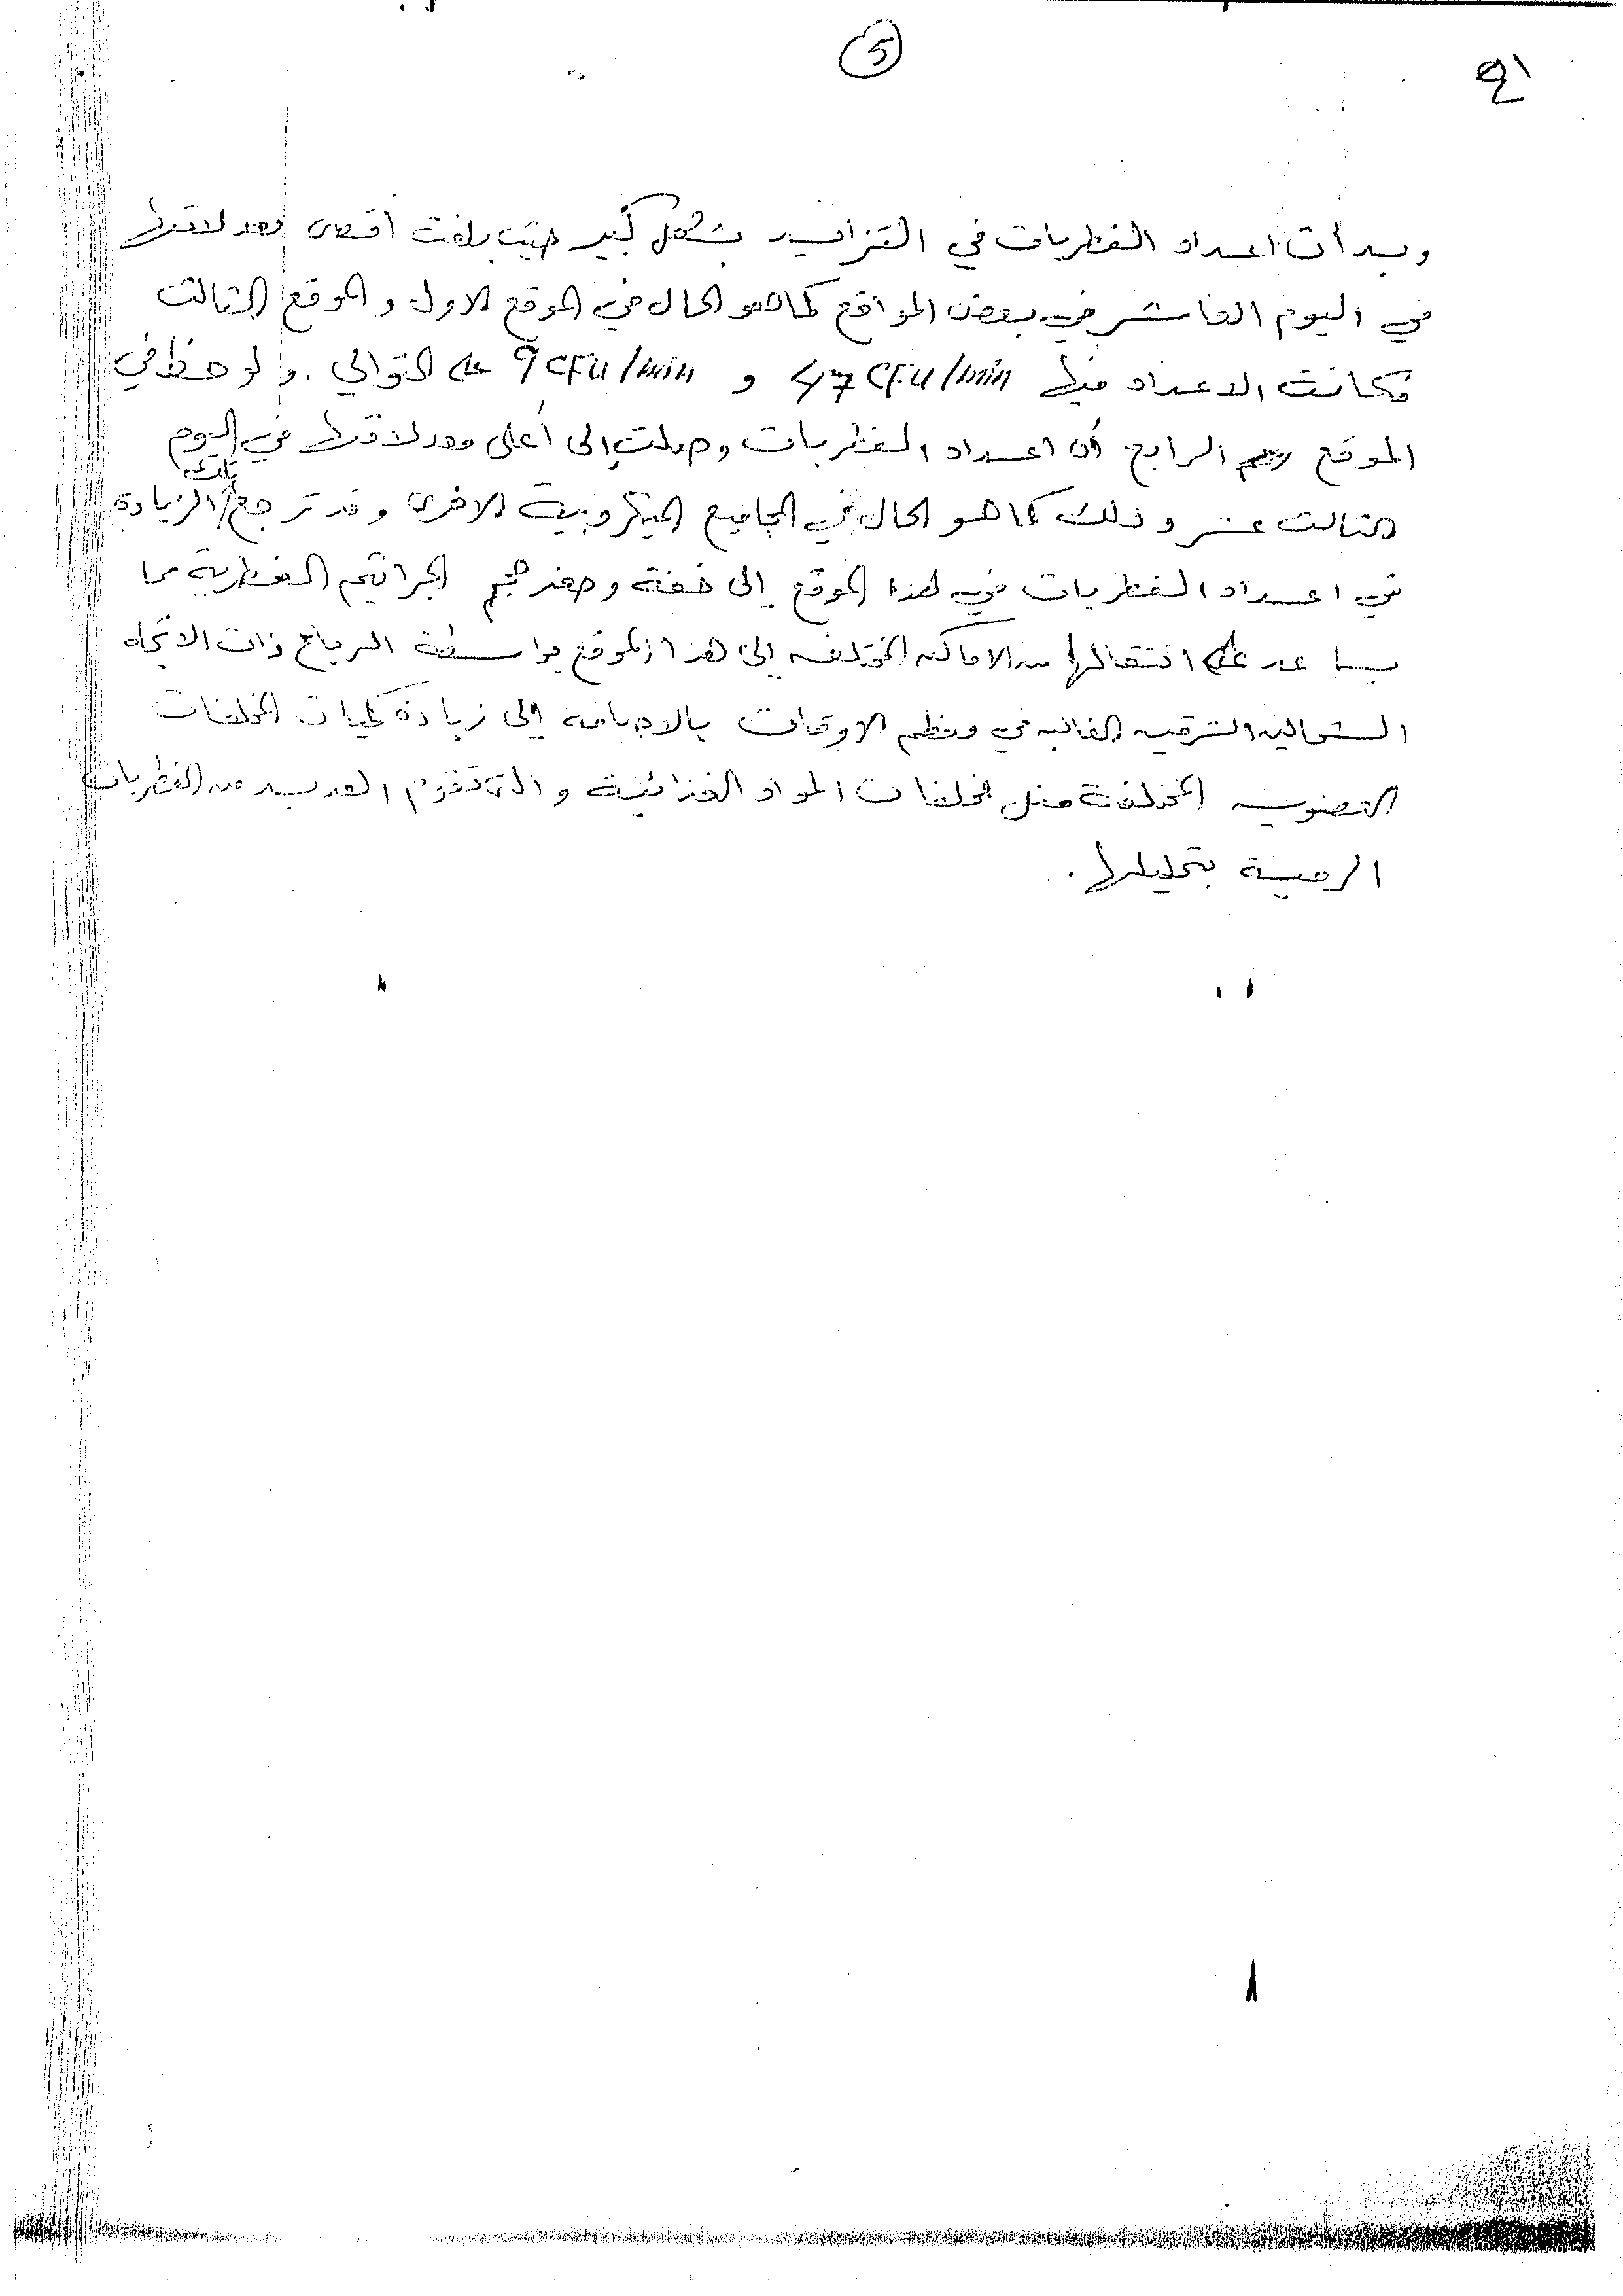 5
وبدأت اعداد الفطريات في التزايد بشكل كبير حيث بلغت أقصى معدلاتها
في اليوم العاشر في بعض المواقع كما هو الحال في الموقع الاول والموقع الثالث
فكانت الاعداد فيها 47 CFU/min و 9 CFU/min على التوالي. ولوحظ في
الموقع الرابع أن اعداد الفطريات وصلت إلى أعلى معدلاتها في اليوم
الثالث عشر وذلك كما هو الحال في المجاميع الميكروبية الاخرى وقد ترجع تلك الزيادة
في اعداد الفطريات في هذا الموقع إلى خفة وصغر حجم الجراثيم الفطرية مما
يساعد على انتقالها من الاماكن المختلفه إلى هذا الموقع بواسطة الرياح ذات الاتجاه
الشماليه الشرقيه الغالبه في معظم الاوقات بالاضافة إلى زيادة كميات المخلفات
العضويه المختلفة مثل مخلفات المواد الغذائية والتي تقوم العديد من الفطريات
الرمية بتحليلها.